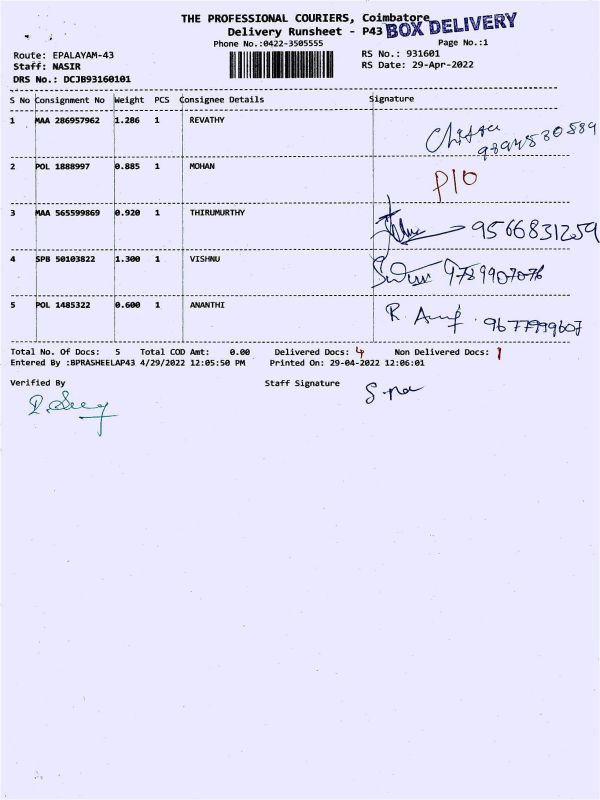 THE PROFESSIONAL COURIERS, Coimbatore
Delivery Runsheet - P43 BOX DELIVERY
Phone No.:0422-3505555 Page No.:1
Route: EPALAYAM-43 RS No.: 931601
Staff: NASIR RS Date: 29-Apr-2022
DRS No.: DCJB93160101
S No Consignment No Weight PCS Consignee Details Signature
1 MAA 286957962 1.286 1 REVATHY
2 POL 1888997 0.885 1 MOHAN P10
3 MAA 565599869 0.920 1 THIRUMURTHY 9566831259
4 SPB 50103822 1.300 1 VISHNU 9789907076
5 POL 1485322 0.600 1 ANANTHI 9677999607
Total No. Of Docs: 5 Total COD Amt: 0.00 Delivered Docs: 4 Non Delivered Docs: 1
Entered By :BPRASHEELAP43 4/29/2022 12:05:50 PM Printed On: 29-04-2022 12:06:01
Verified By Staff Signature